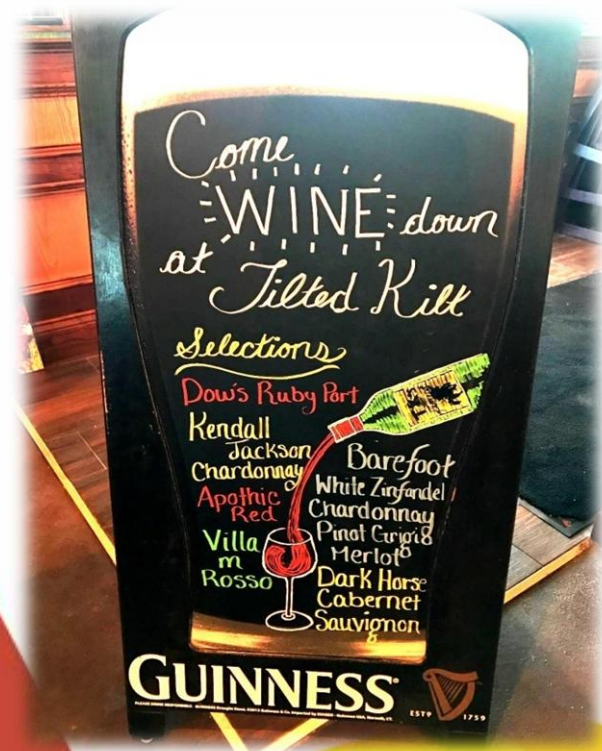 Come
WINE down
at Tilted Kilt
Selections
Dow's Ruby Port
Kendall
Jackson
Chardonnay
Apothic
Red
Villa
m
Rosso
Barefoot
White Zinfandel
Chardonnay
Pinot Grigio
Merlot
Dark Horse
Cabernet
Sauvignon
GUINNESS®
ESTD 1759